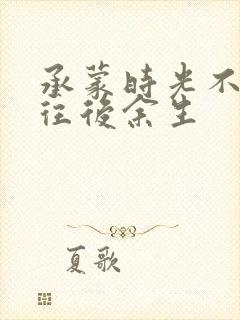 承蒙時光不
往後余生
夏歌